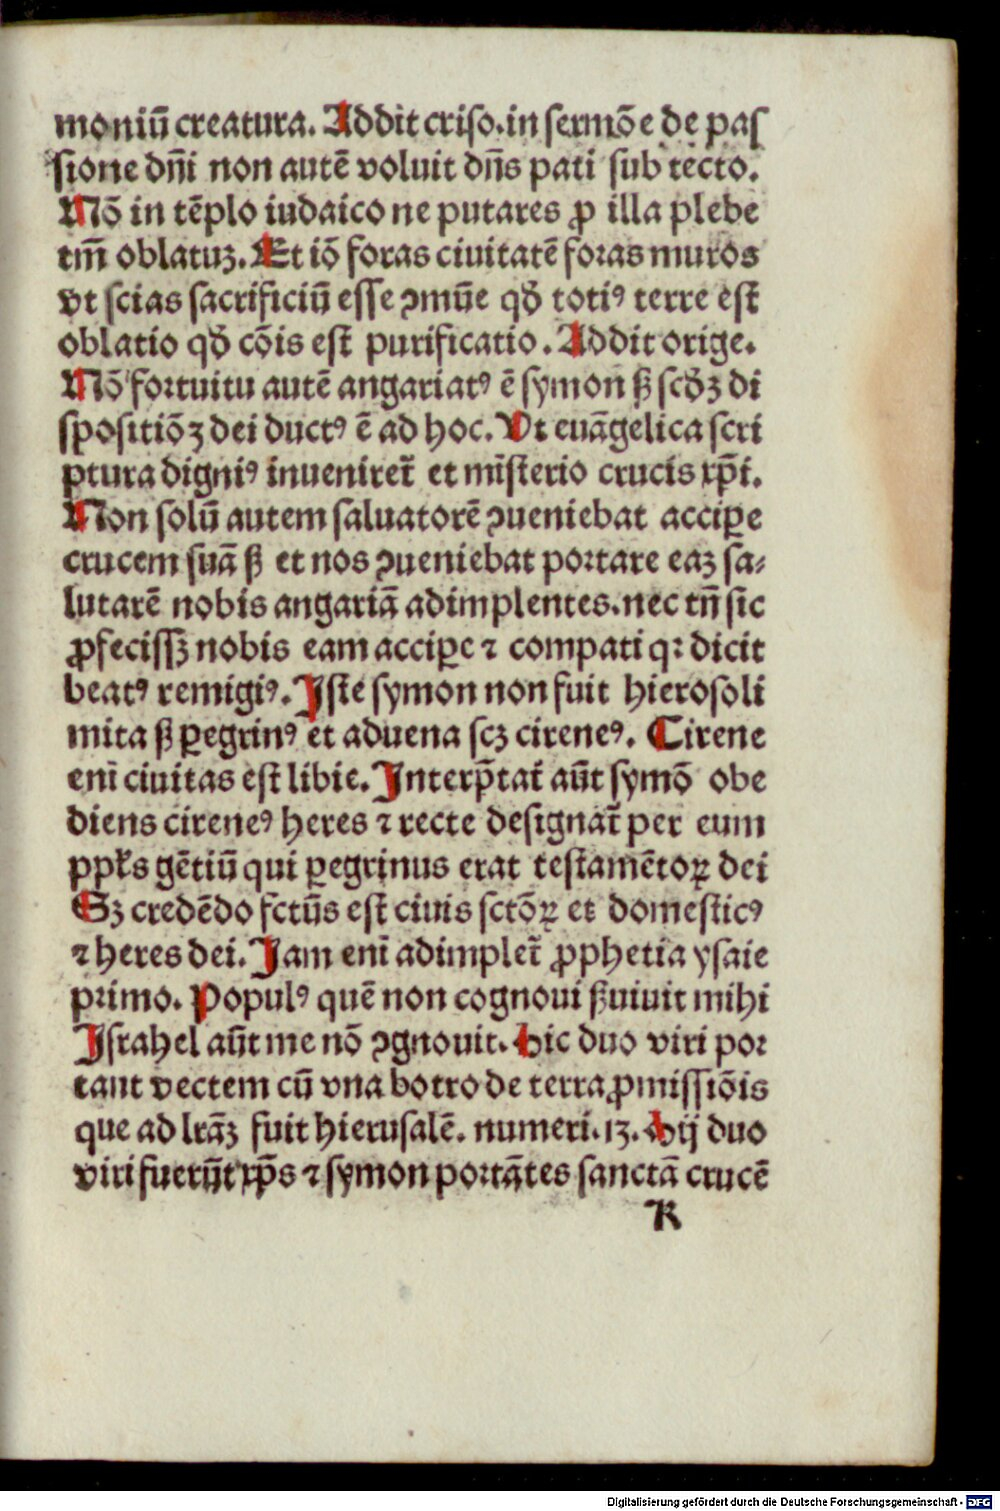 moniū creatura. Addit criso.in sermōe de paſ
ſione dn̄i non autē voluit dn̄s pati ſub tecto.
Nō in tēplo iudaico ne putares ꝓ illa plebe
tm̄ oblatuꝫ. Et iō foras ciuitatē foras muros
vt ſcias ſacrificiū eſſe ꝯmūe qð totiꝰ terre eſt
oblatio qð cōis eſt purificatio. Addit orige.
Nō fortuitu autē angariatꝰ ē ſymon ß ſcðꝫ di
ſpoſitiōꝫ dei ductꝰ ē ad hoc. Vt euāgelica ſcri
ptura digniꝰ inueniret᷑ et miſterio crucis xp̄i.
Non ſolū autem ſaluatorē ꝯueniebat acciꝑe
crucem ſuā ß et nos ꝯueniebat portare eaꝫ ſa⸗
lutarē nobis angariā adimplentes.nec tn̄ ſic
ꝓfeciſſꝫ nobis eam acciꝑe ⁊ compati qꝛ dicit
beatꝰ remigiꝰ. Iſte ſymon non fuit hieroſoli
mita ß ꝑegrinꝰ et aduena ſcꝫ cireneꝰ. Cirene
enī ciuitas eſt libie. Interp̄tat᷑ aūt ſymō obe
diens cireneꝰ heres ⁊ recte deſignat᷑ per eum
ppl̄s gētiū qui ꝑegrinus erat teſtamētoꝝ dei
Sꝫ credēdo fctūs eſt ciuis ſctōꝝ et domeſticꝰ
⁊ heres dei. Jam enī adimplet᷑ ꝓphetia yſaie
primo. Populꝰ quē non cognoui ßuiuit mihi
Iſrahel aūt me nō ꝯgnouit. Hic duo viri por
tant vectem cū vna botro de terra ꝓmiſſiōis
que ad lrāꝫ fuit hieruſalē. numeri.13. Hij duo
viri fuerūt xp̄s ⁊ ſymon portātes ſanctā crucē
R
Digitalisierung gefördert durch die Deutsche Forschungsgemeinschaft - DFG